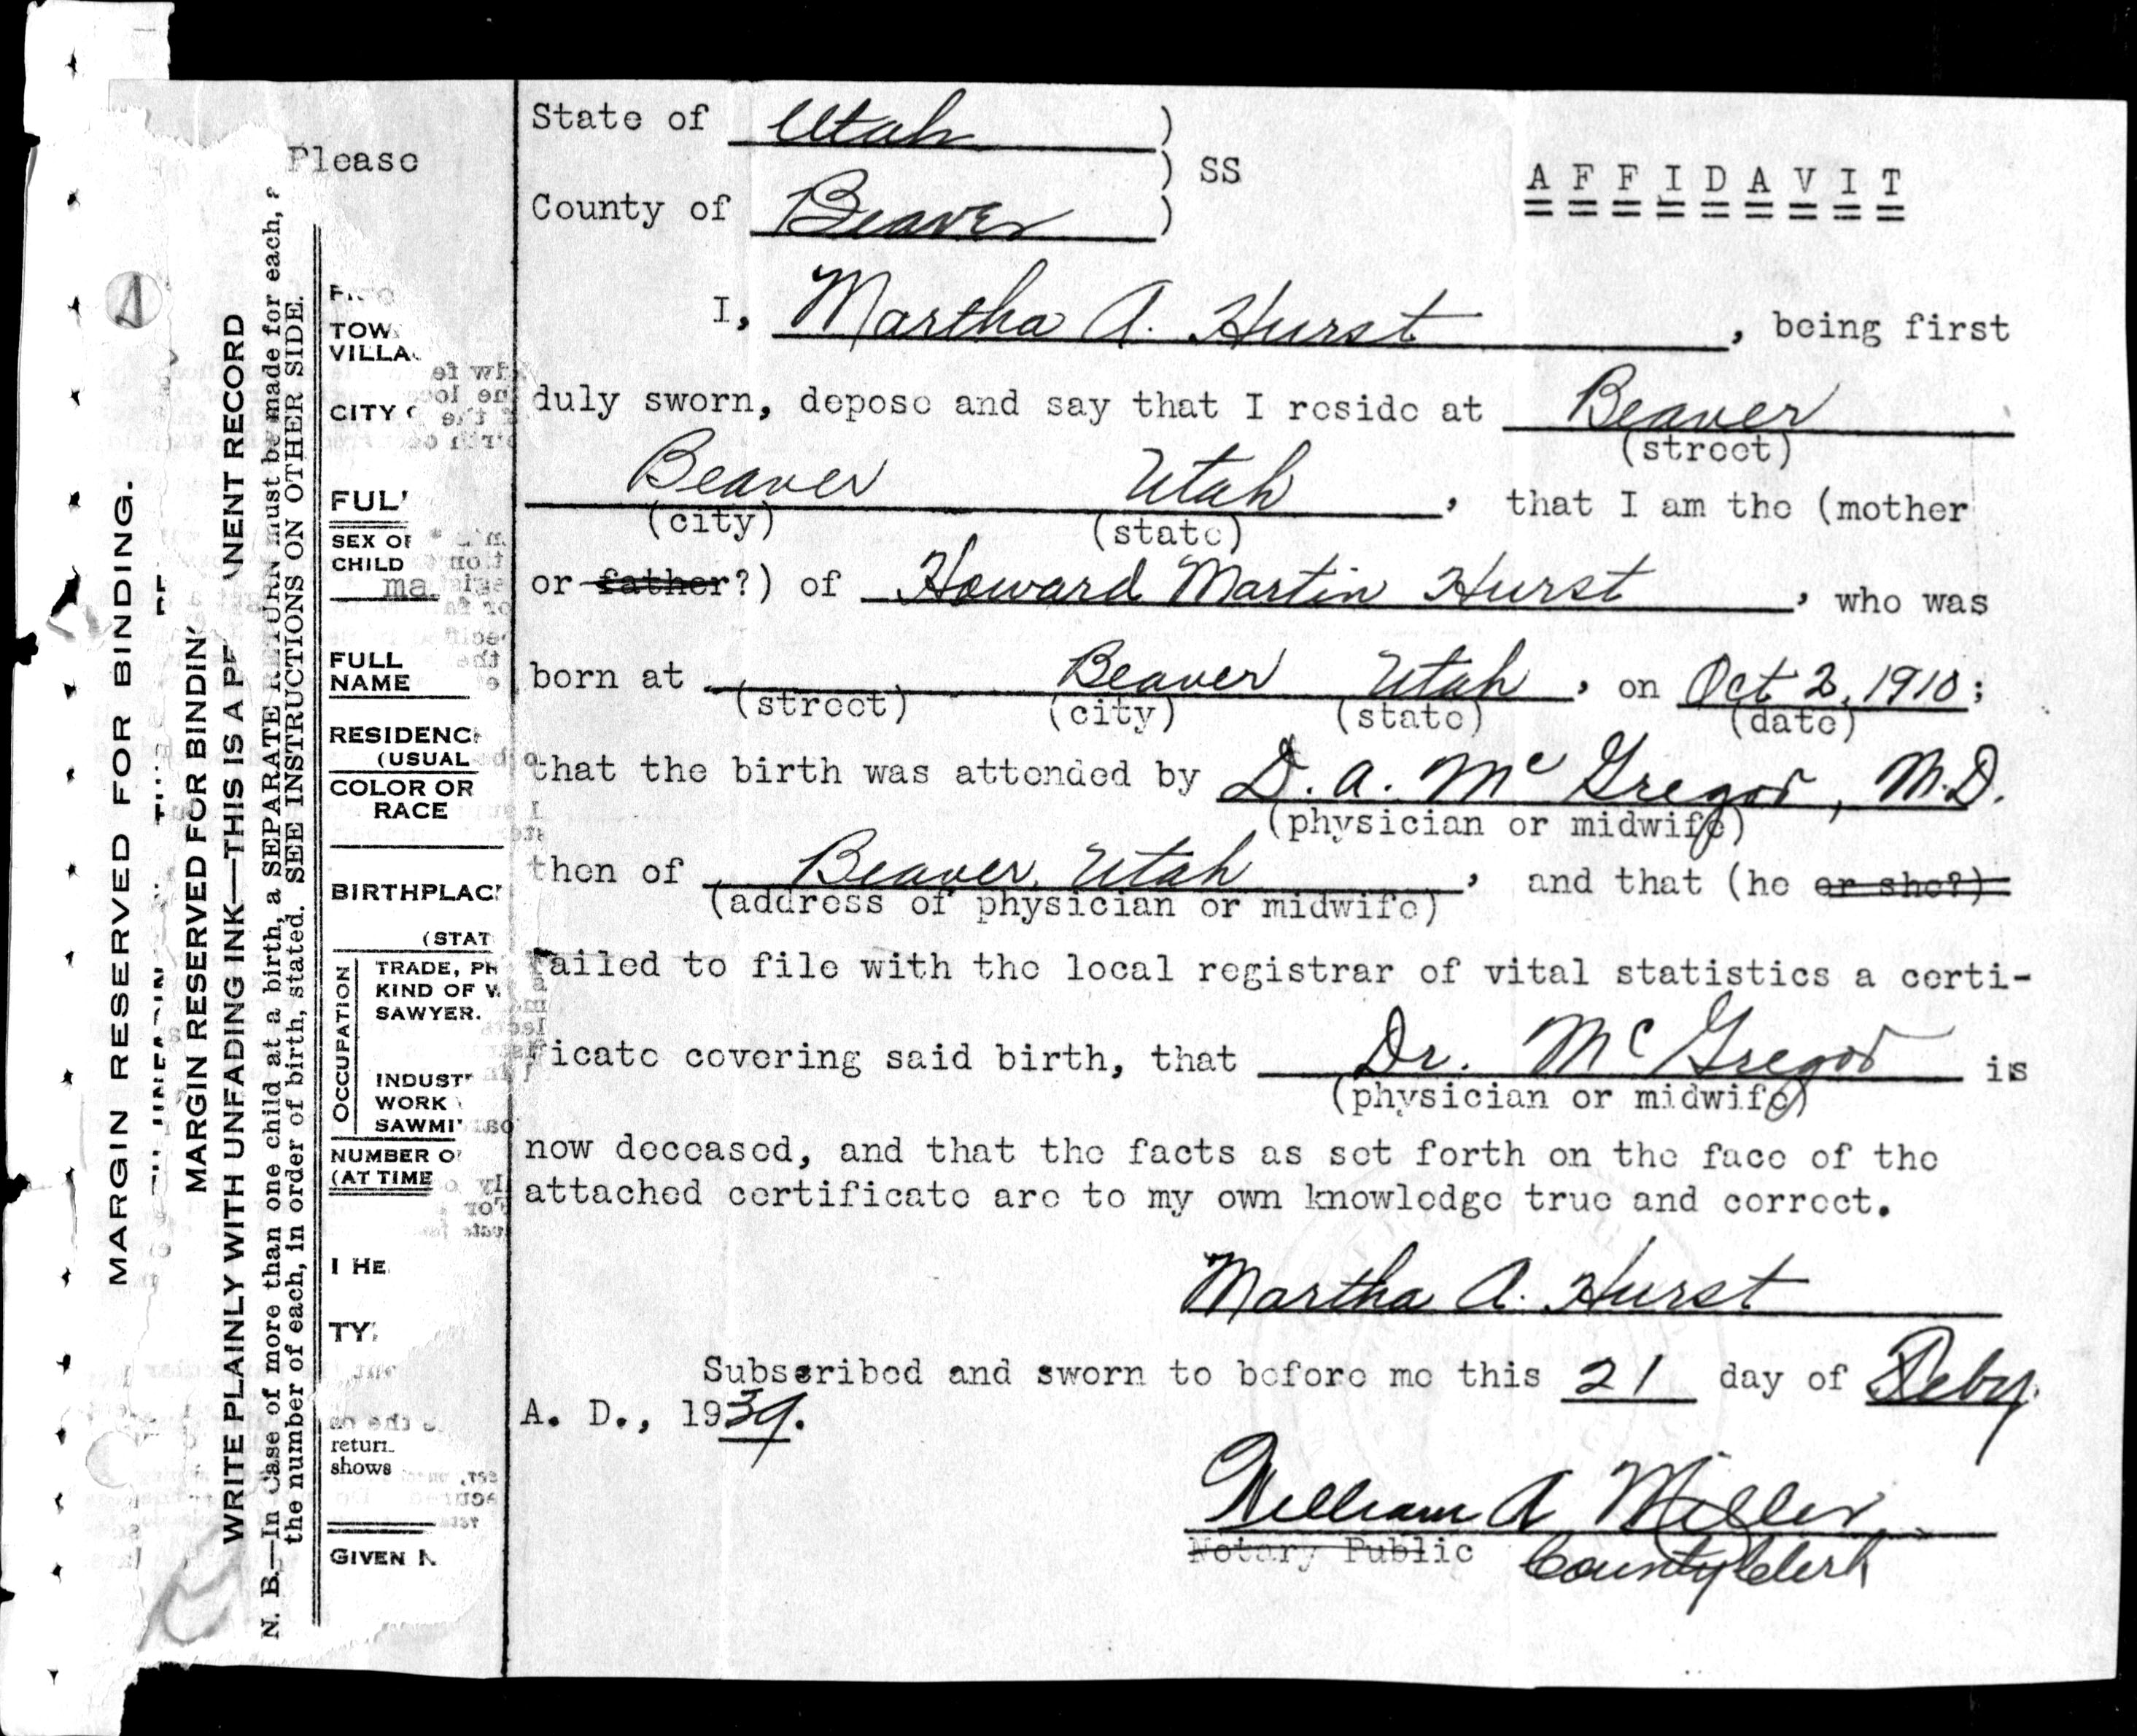 State of Utah )
) SS
County of Beaver )
A F F I D A V I T
I, Martha A. Hurst, being first
duly sworn, depose and say that I reside at Beaver
(street)
Beaver Utah, that I am the (mother
(city) (state)
or father?) of Howard Martin Hurst, who was
born at Beaver Utah, on Oct 2, 1910;
(street) (city) (state) (date)
that the birth was attended by D. A. McGregor, M.D.
(physician or midwife)
then of Beaver, Utah, and that (he or she?)
(address of physician or midwife)
failed to file with the local registrar of vital statistics a certi-
ficate covering said birth, that Dr. McGregor is
(physician or midwife)
now deceased, and that the facts as set forth on the face of the
attached certificate are to my own knowledge true and correct.
Martha A. Hurst
Subscribed and sworn to before me this 21 day of Feby.
A. D., 1939.
William A Miller
Notary Public County Clerk
MARGIN RESERVED FOR BINDING.
MARGIN RESERVED FOR BINDIN
WRITE PLAINLY WITH UNFADING INK—THIS IS A PE NENT RECORD
N. B.—In Case of more than one child at a birth, a SEPARATE RETURN must be made for each, a
the number of each, in order of birth, stated. SEE INSTRUCTIONS ON OTHER SIDE.
Please
TOW
VILLA
CITY
FUL
SEX OF
CHILD
ma
FULL
NAME
RESIDENC
(USUAL
COLOR OR
RACE
BIRTHPLAC
(STAT
OCCUPATION
TRADE, PR
KIND OF W
SAWYER.
INDUST
WORK
SAWMI
NUMBER O
(AT TIME
I HE
TY
return
shows
GIVEN N